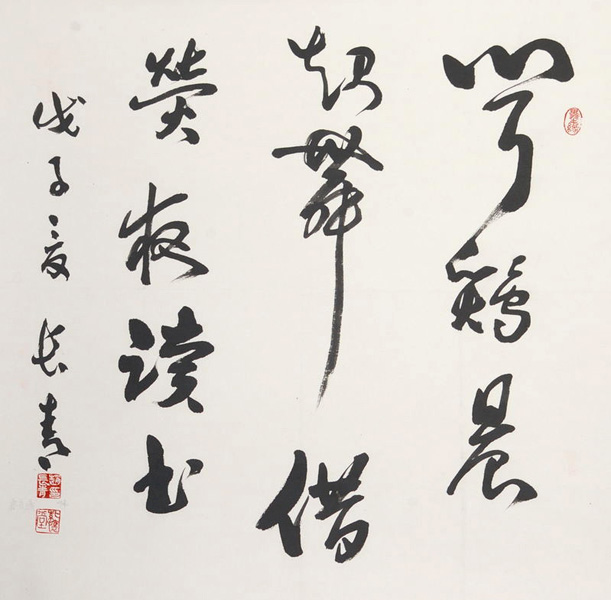 闻鷄晨
起舞借
熒夜读书
戊子夏长青